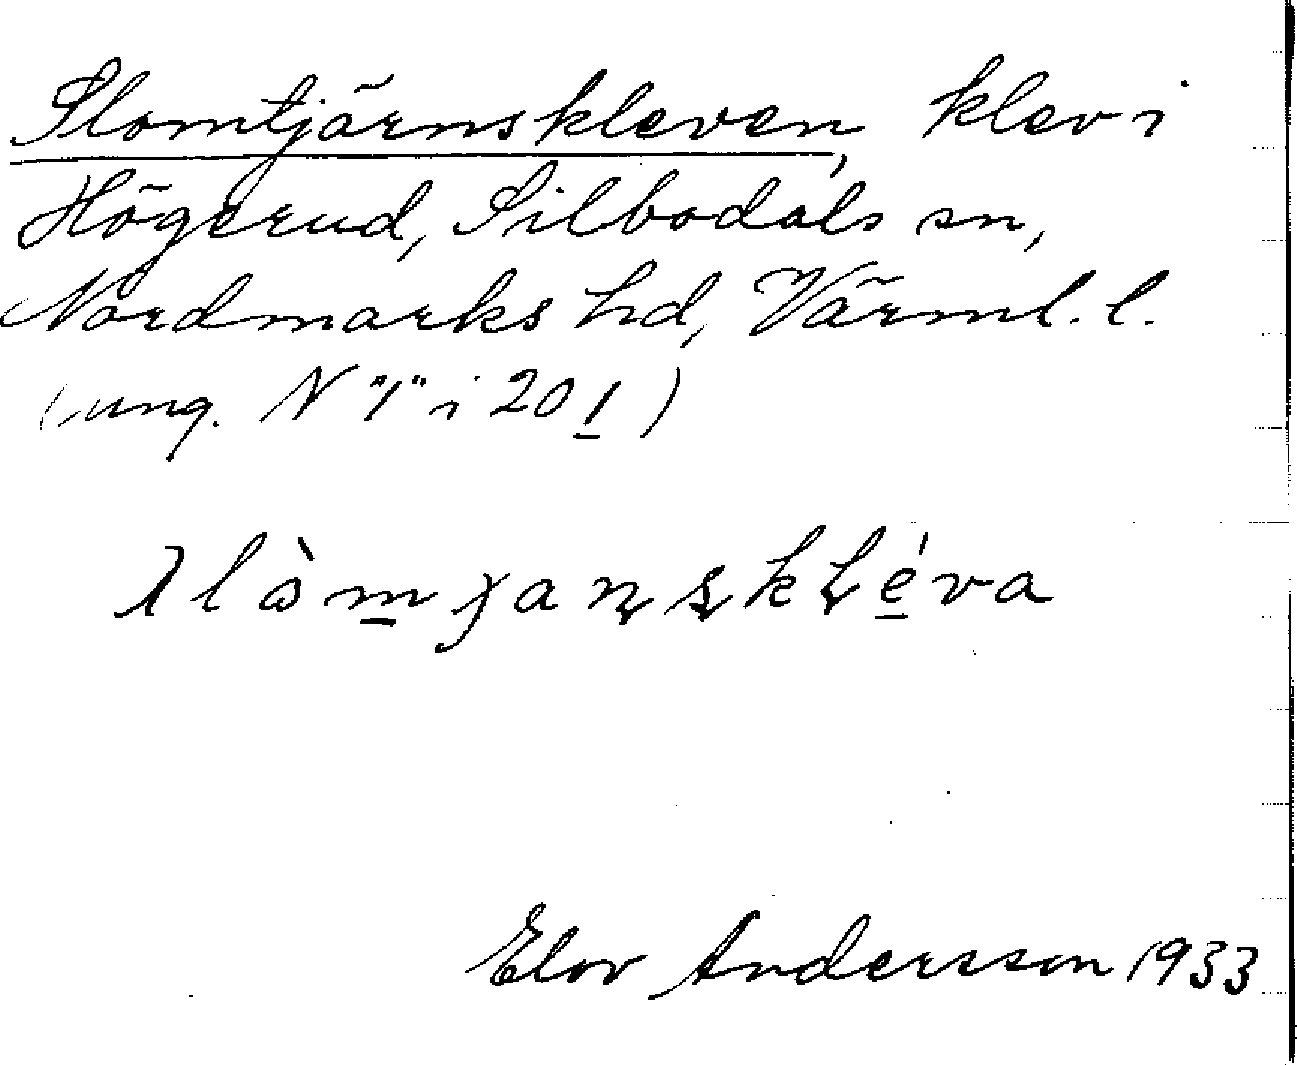 Slomtjärnskleven, klev i
Högerud, Silbodals sn,
Nordmarks hd, Värml. l.
(ung. N "1" i 20 1)
Elov Andersson 1933